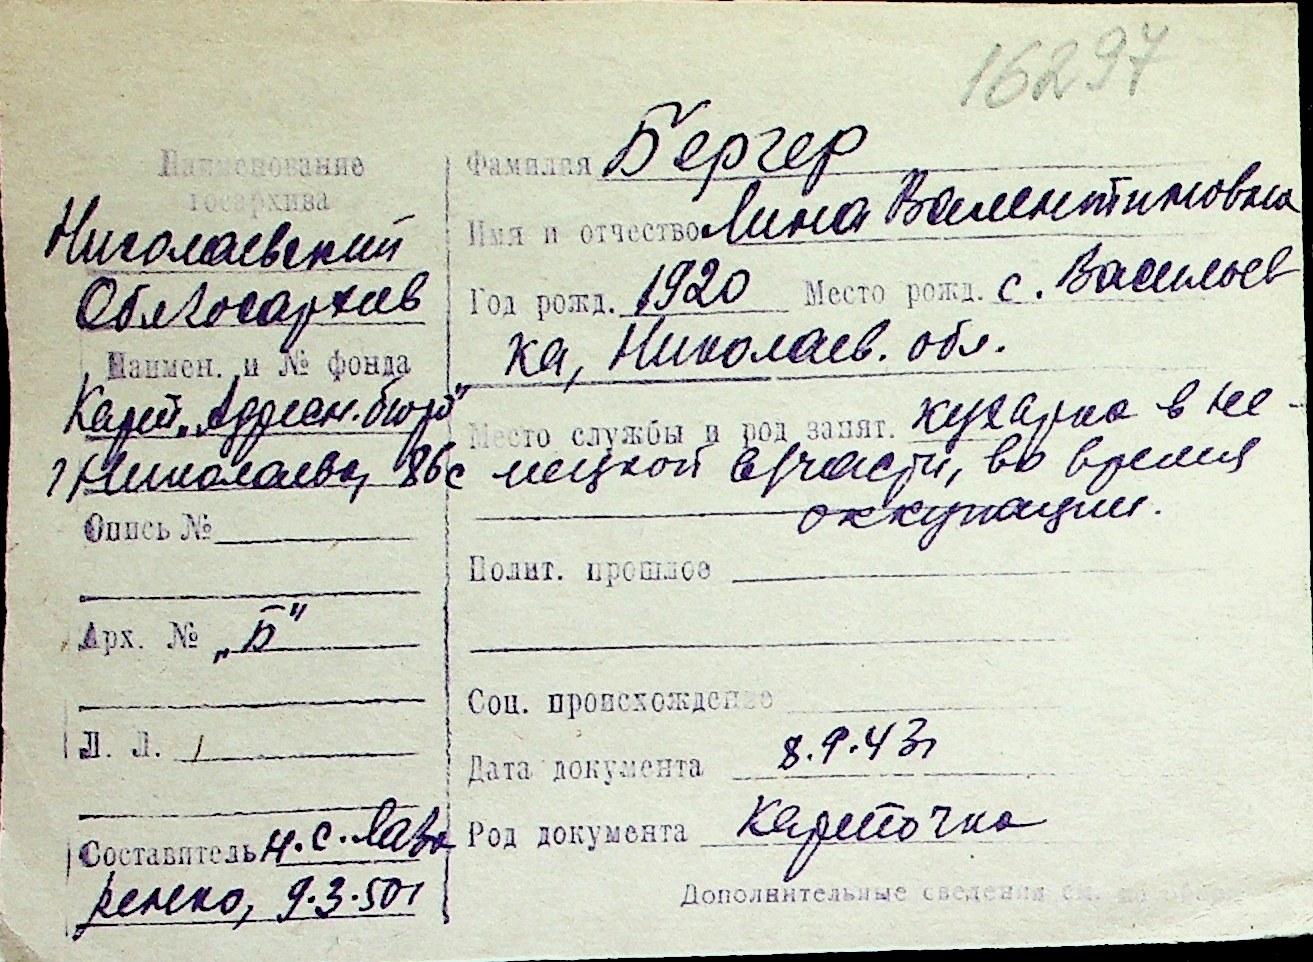 16297
Наименование
госархива
Николаевский
Облгосархив
Наимен. и № фонда
Карт. „Адресн. бюро"
г Николаева, 86с
Опись №
Арх. № „Б"
Л. Л. 1
Составитель Н. С. Лавр
ренено, 9.3.50г
Фамилия Бергер
Имя и отчество Лина Валентиновна
Год рожд. 1920 Место рожд. с. Васильев
ка, Николаев. обл.
Место службы и род занят. кухарка в не-
мецкой в/части, во время
оккупации.
Полит. прошлое
Соц. происхождение
Дата документа 8.9.43г
Род документа Карточка
Дополнительные сведения см. на обор.